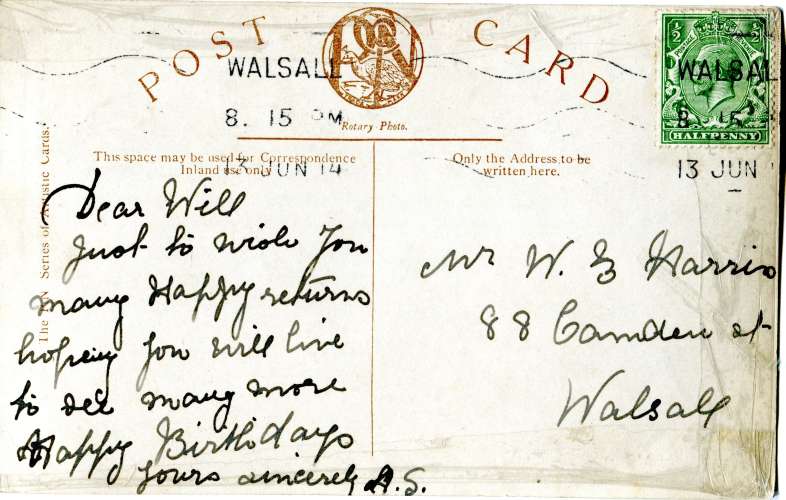 POST CARD
WALSALL
8. 15 PM
13 JUN 14
WALSAL
8. 15
13 JUN
HALFPENNY
Rotary Photo.
This space may be used for Correspondence
Inland use only
Only the Address to be
written here.
Series of Artistic Cards.
Dear Will
Just to wish you
many Happy returns
hopeing you will live
to see many more
Happy Birthdays
yours sincerely A.S.
Mr W. Harris
88 Camden st
Walsall